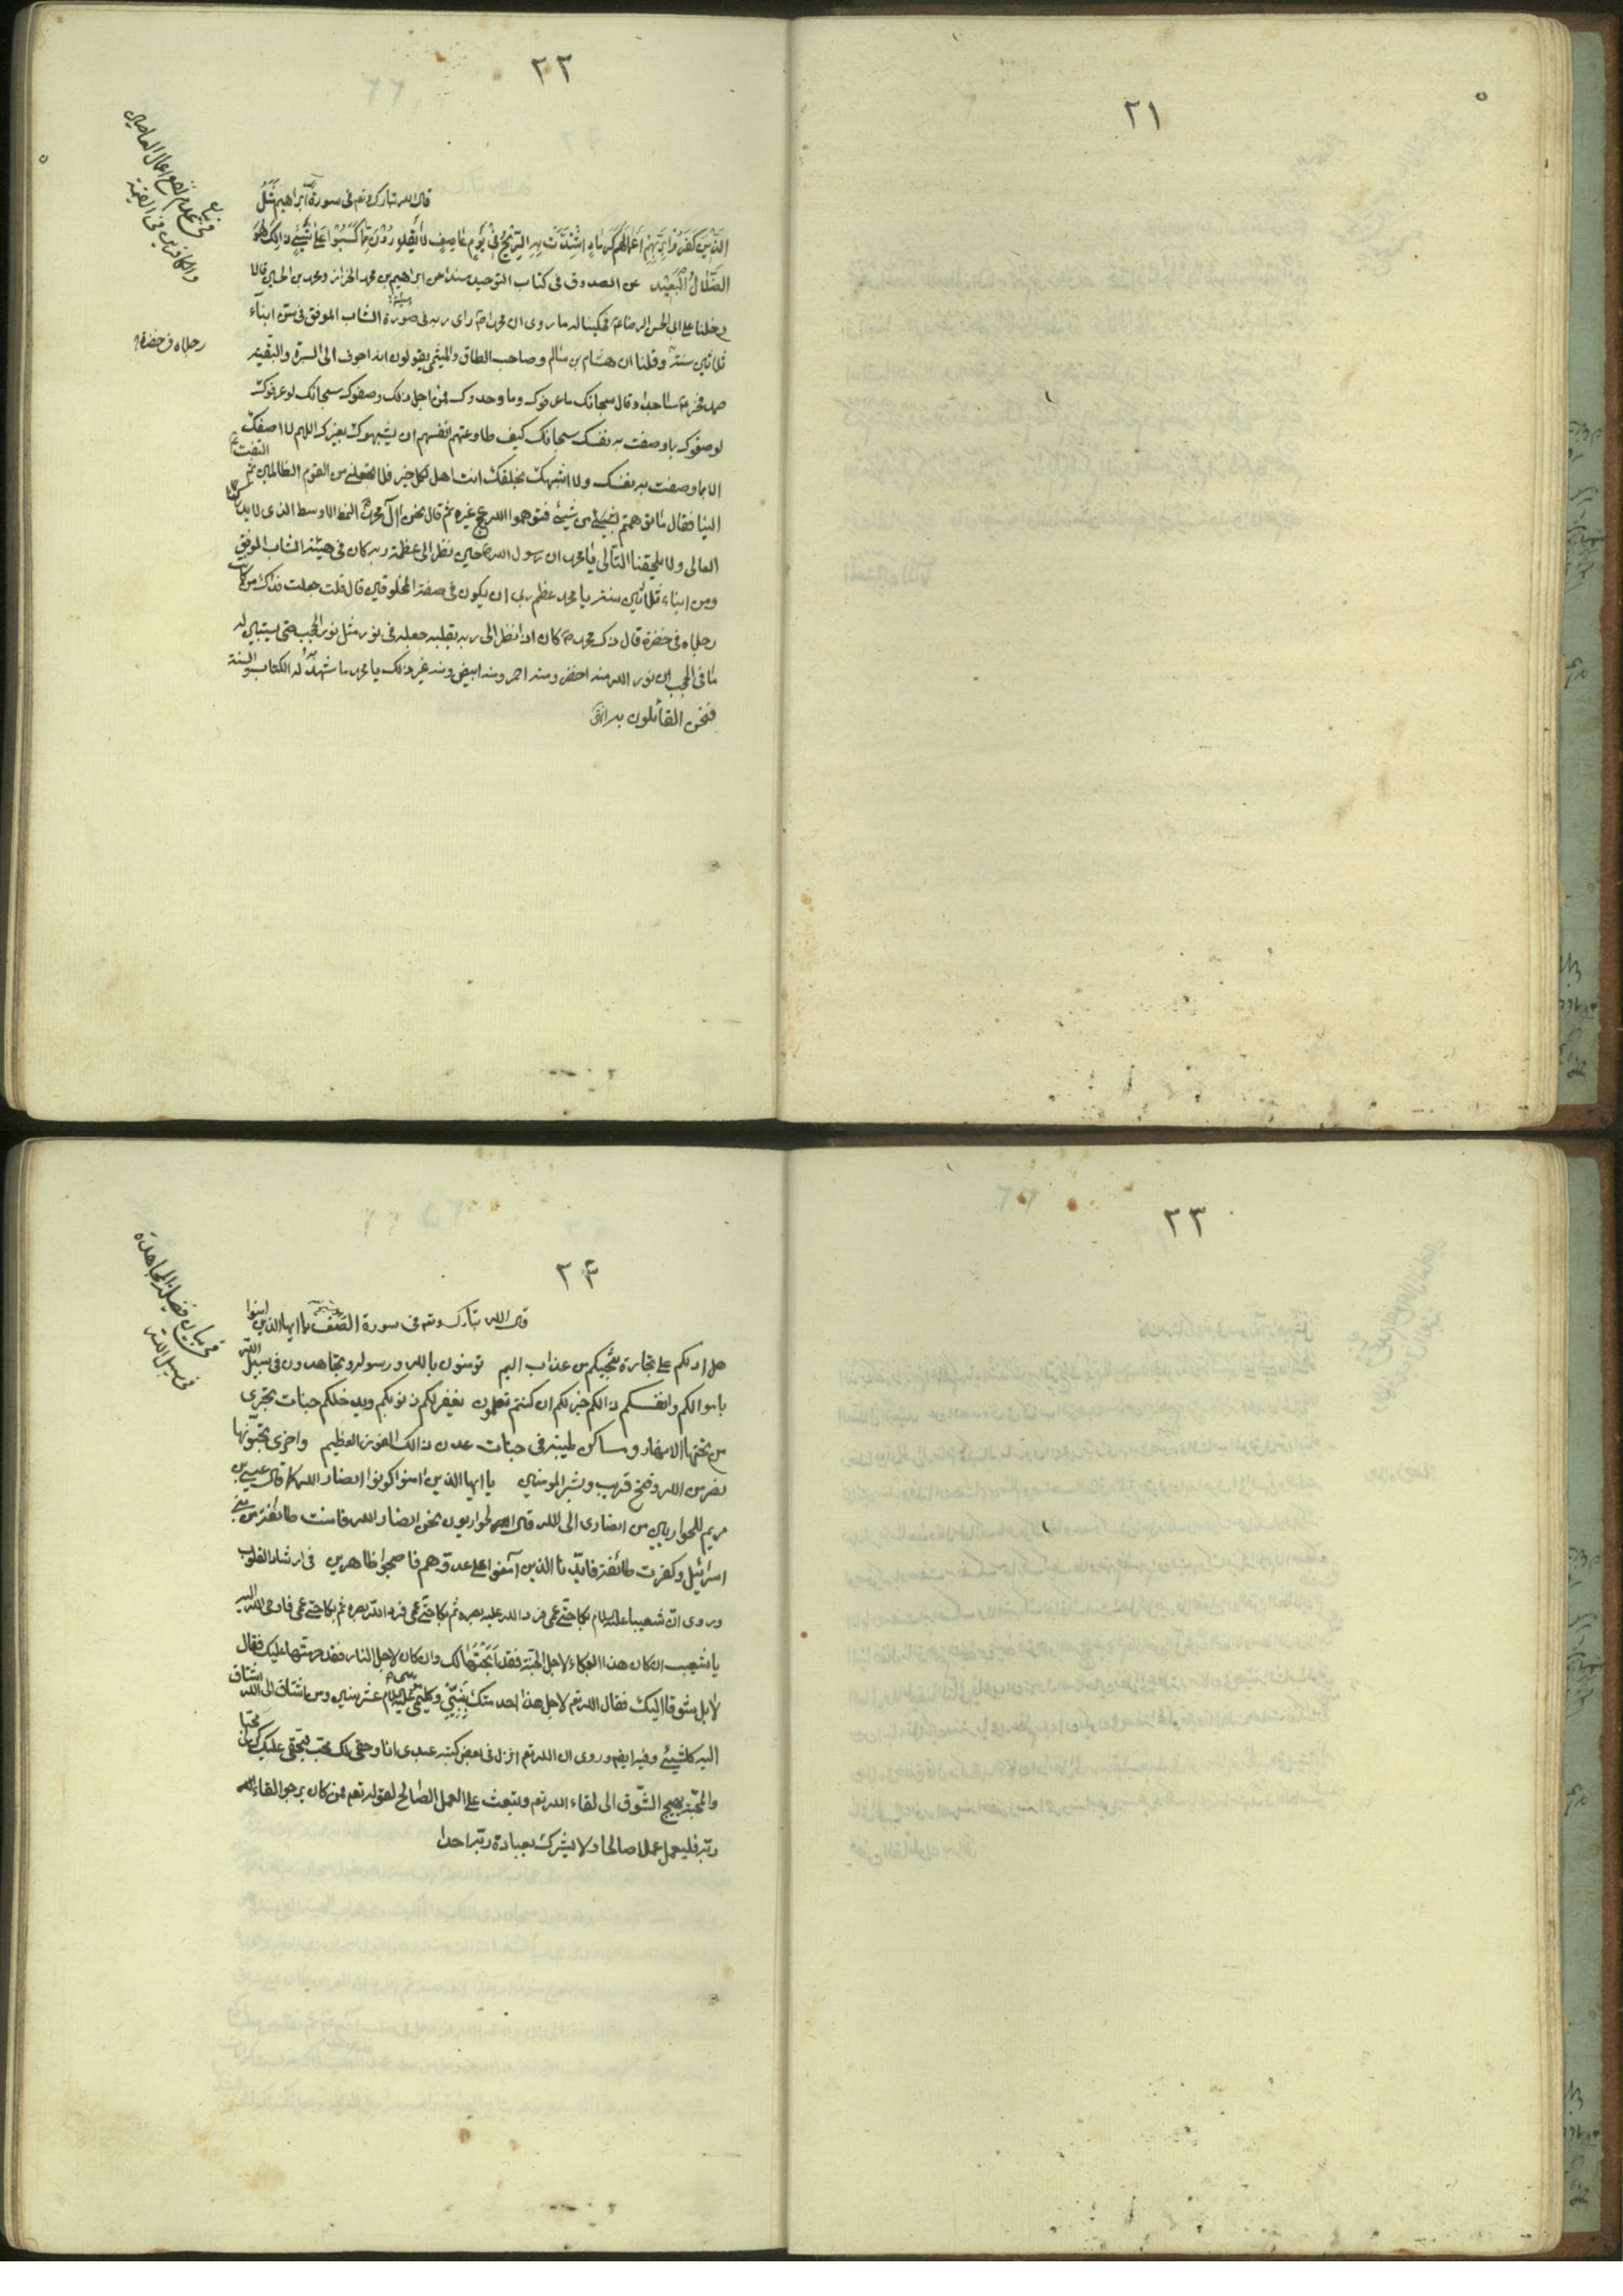 ٢١
٢٢
في بيان
عدم نفع اعمال العاصين
والكافرين في القيمة
قال الله تبارك وتعم في سورة ابراهيم مَثَلُ
الَّذِينَ كَفَرُوا بِرَبِّهِمْ اَعْمَالُهُمْ كَرَمَادٍ اشْتَدَّتْ بِهِ الرِّيحُ فِي يَوْمٍ عَاصِفٍ لَا يَقْدِرُونَ مِمَّا كَسَبُوا عَلَى شَيْءٍ ذَالِكَ هُوَ
الضَّلَالُ الْبَعِيْد عن الصدوق في كتاب التوحيد مسندا عن ابراهيم بن محمد الخزاز ومحمد بن الحسين قالا
دخلنا على ابي الحسن الرضا ع فحكينا له ما روى ان محمدا ص راى ربه في صورة الشاب الموفق في سن ابناء
ثلاثين سنة وقلنا ان هشام بن سالم وصاحب الطاق والميثمي يقولون انه اجوف الى السرة والبقية
رجلاه في خضرة
صمد فخر ع ساجدا وقال سبحانك ما عرفوك وما وحدوك فمن اجل ذلك وصفوك سبحانك لو عرفوك
لوصفوك بما وصفت به نفسك سبحانك كيف طاوعتهم انفسهم ان يشبهوك بغيرك اللهم لا اصفك
الا بما وصفت به نفسك ولا اشبهك بخلقك انت اهل لكل خير فلا تجعلني من القوم الظالمين ثم التفت
الينا فقال ما توهمتم من شيئ فتوهموا الله غيره ثم قال نحن آل محمد النمط الاوسط الذي لا يدركنا
الغالى ولا يلحقنا التالى يا محمد ان رسول الله ص حين نظر الى عظمة ربه كان في هيئة الشاب الموفق
ومن ابناء ثلاثين سنة يا محمد عظم ربي ان يكون في صفة المخلوقين قال قلت جعلت فداك من كانت
رجلاه في خضرة قال ذاك محمد ص كان اذا نظر الى ربه بقلبه جعله في نور مثل نور الحجب حتى يستبين له
ما في الحجب ان نور الله منه اخضر ومنه احمر ومنه ابيض ومنه غير ذلك يا محمد ما شهد له الكتاب والسنة
فنحن القائلون به انتهى
٢٣
٢٤
في بيان فضيلة المجاهدة
في سبيل الله
قال الله تبارك وتعم في سورة الصف يا ايها الذين امنوا
هل ادلكم على تجارة تنجيكم من عذاب اليم تومنون بالله ورسوله وتجاهدون في سبيل الله
باموالكم وانفسكم ذالكم خير لكم ان كنتم تعلمون يغفر لكم ذنوبكم ويدخلكم جنات تجرى
من تحتها الانهار ومساكن طيبة في جنات عدن ذالك الفوز العظيم واخرى تحبونها
نصر من الله وفتح قريب وبشر المومنين يا ايها الذين امنوا كونوا انصار الله كما قال عيسى بن
مريم للحواريين من انصارى الى الله قال الحواريون نحن انصار الله فامنت طائفة من بني
اسرائيل وكفرت طائفة فايدنا الذين آمنوا على عدوهم فاصبحوا ظاهرين في ارشاد القلوب
وروى ان شعيبا عليه السلام بكا حتى عمى فرد الله عليه بصره ثم بكا حتى عمى فرد الله بصره ثم بكا حتى عمى فاوحى الله اليه
يا شعيب ان كان هذا البكاء لاجل الجنة فقد ابحتها لك وان كان لاجل النار فقد حرمتها عليك فقال
لا بل شوقا اليك فقال الله تعم لاجل هذا اخدمتك نبيي وكليمي موسى عليه السلام عشر سنين ومن اشتاق الى الله اشتاق
اليه كل شيئ وفيه ايضم وروى ان الله تعم انزل في بعض كتبه عبدى انا وحقى لك محب فبحقى عليك كن لى محبا
والمحبة يهيج الشوق الى لقاء الله تعم ويبعث على العمل الصالح لقوله تعم فمن كان يرجوا لقاء
ربه فليعمل عملا صالحا ولا يشرك بعبادة ربه احدا